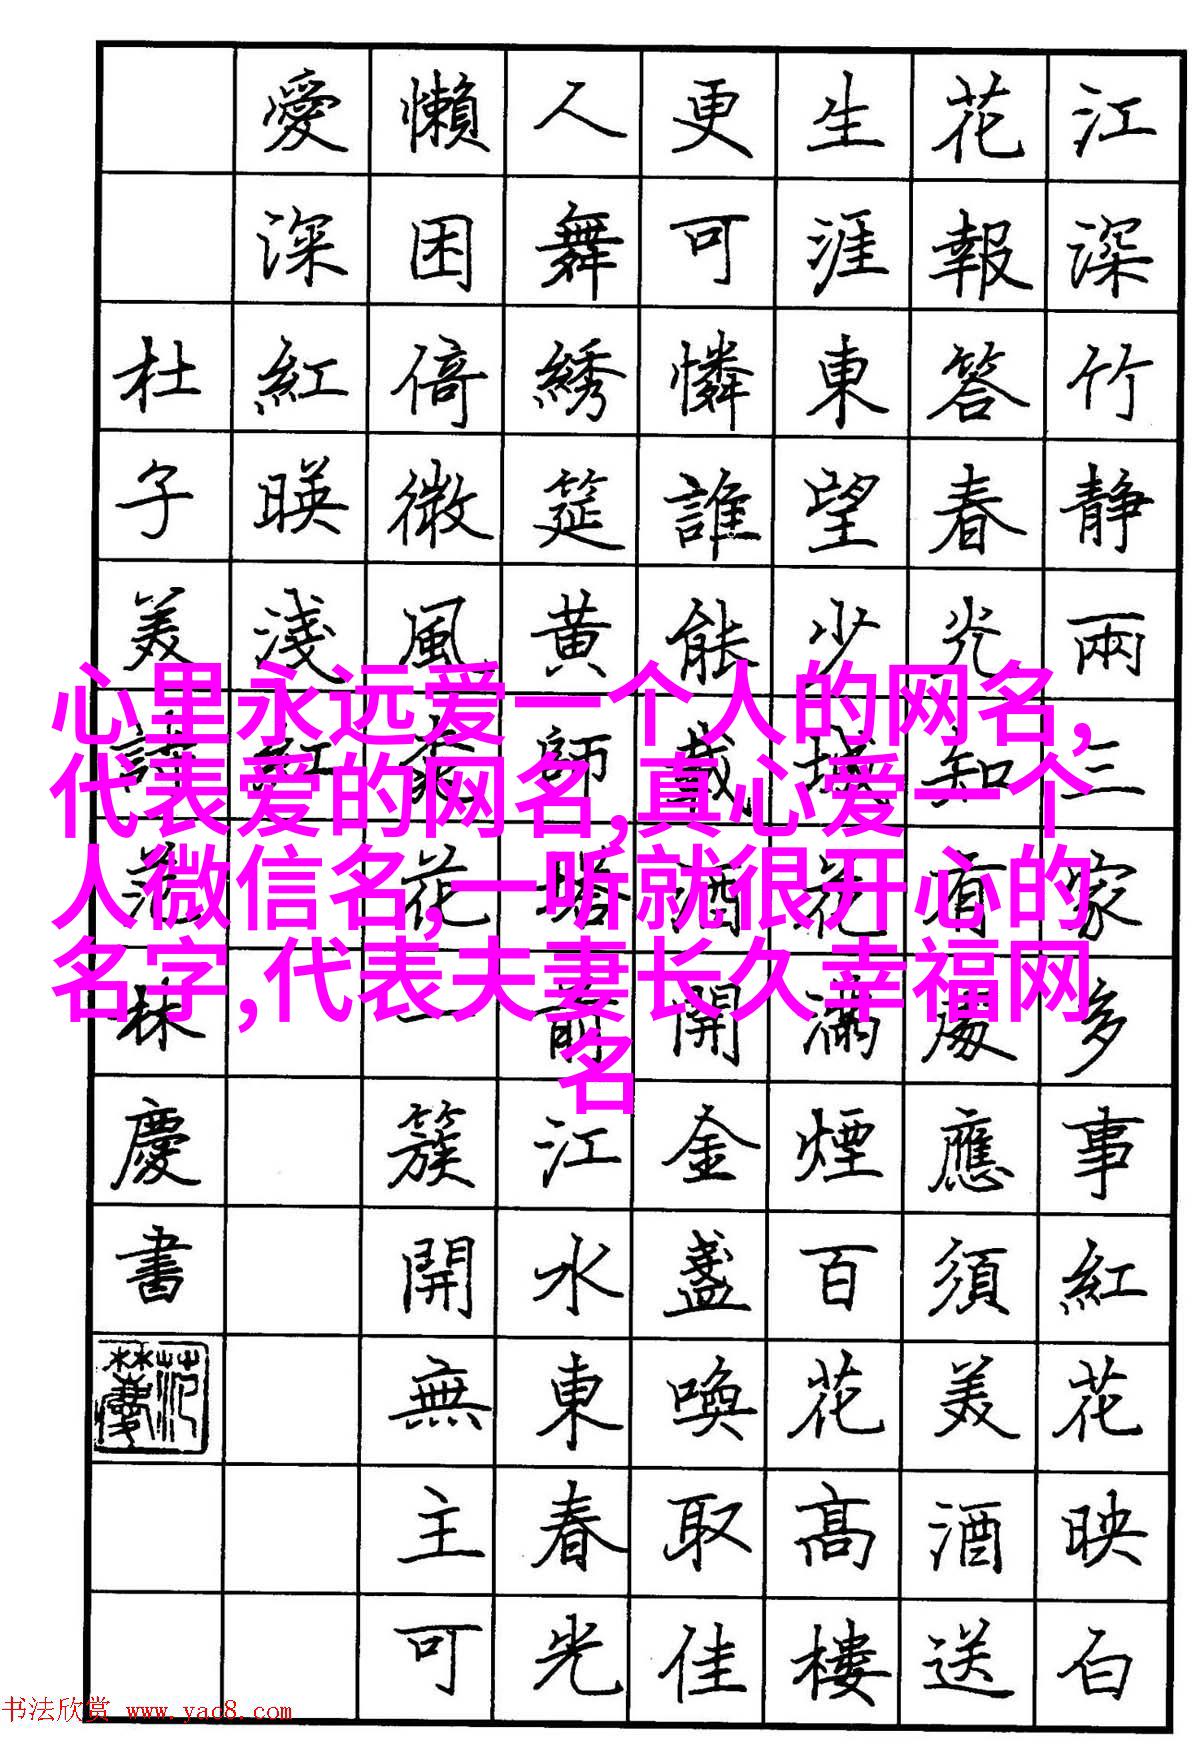 江深竹静兩三家多事紅花映白
花報答春光知有處應須美酒送
生涯東望少城花滿煙百花髙樓
更可憐誰能載酒開金盞喚取佳
人舞綉筵黄師塔前江水東春光
懶困倚微風花一簇開無主可
愛深紅暎淺紅
杜子美詩范林慶書
心里永远爱一个人的网名,
代表爱的网名,真心爱一个
人微信名,一听就很开心的
名字,代表夫妻长久幸福网
名
书法欣赏 www.yac8.com